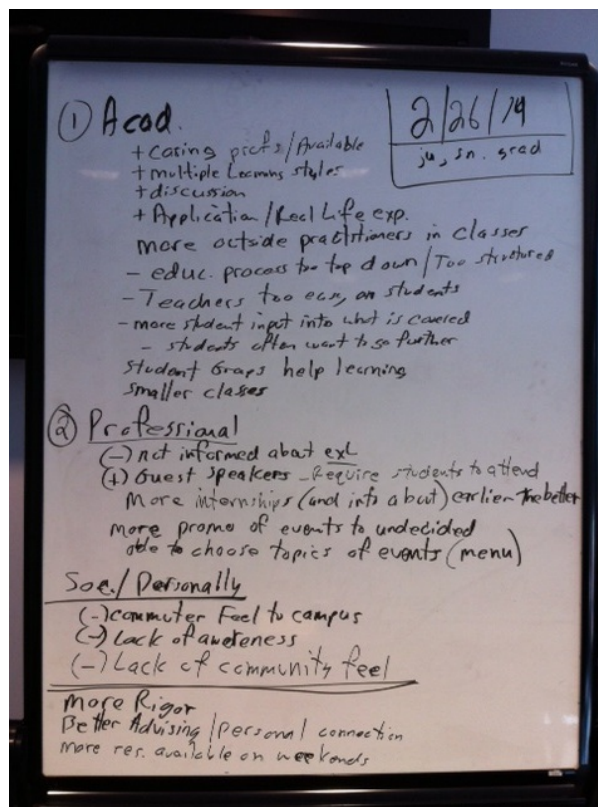 ① Acad.
2/26/14
ju, sn. grad
+ caring profs/Available
+ multiple Learning styles
+ discussion
+ Application/Real Life exp.
more outside practitioners in classes
- educ. process too top down/Too structured
- Teachers too easy on students
- more student input into what is covered
- students often want to go further
Student Groups help learning
smaller classes
② Professional
(-) not informed about exL
(+) Guest speakers - Require students to attend
More internships (and info about) earlier the better
more promo of events to undecided
able to choose topics of events (menu)
Soc./Personally
(-) commuter Feel to campus
(-) Lack of awareness
(-) Lack of community feel
more Rigor
Better Advising/personal connection
more res. available on weekends